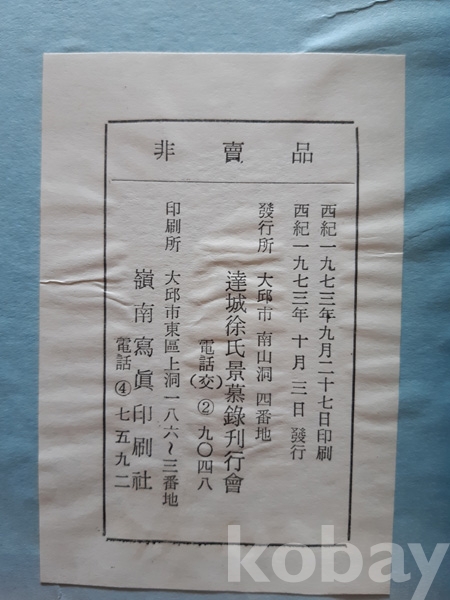 非賣品
西紀一九七三年九月二十七日印刷
西紀一九七三年十月三日發行
發行所 大邱市 南山洞 四番地
達城徐氏景慕錄刊行會
電話(交)②九〇四八
印刷所 大邱市東區上洞一八六~三番地
嶺南寫眞印刷社
電話④七五九二
kobay